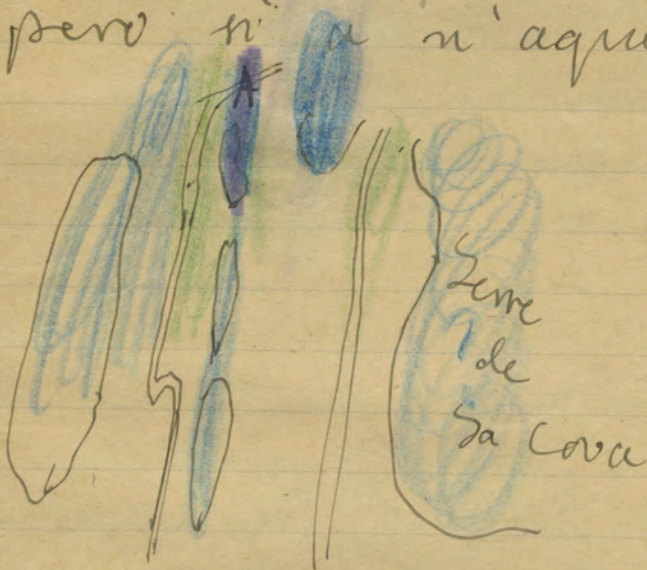 pero si a n' aque
A
Serre
de
Sa Cova